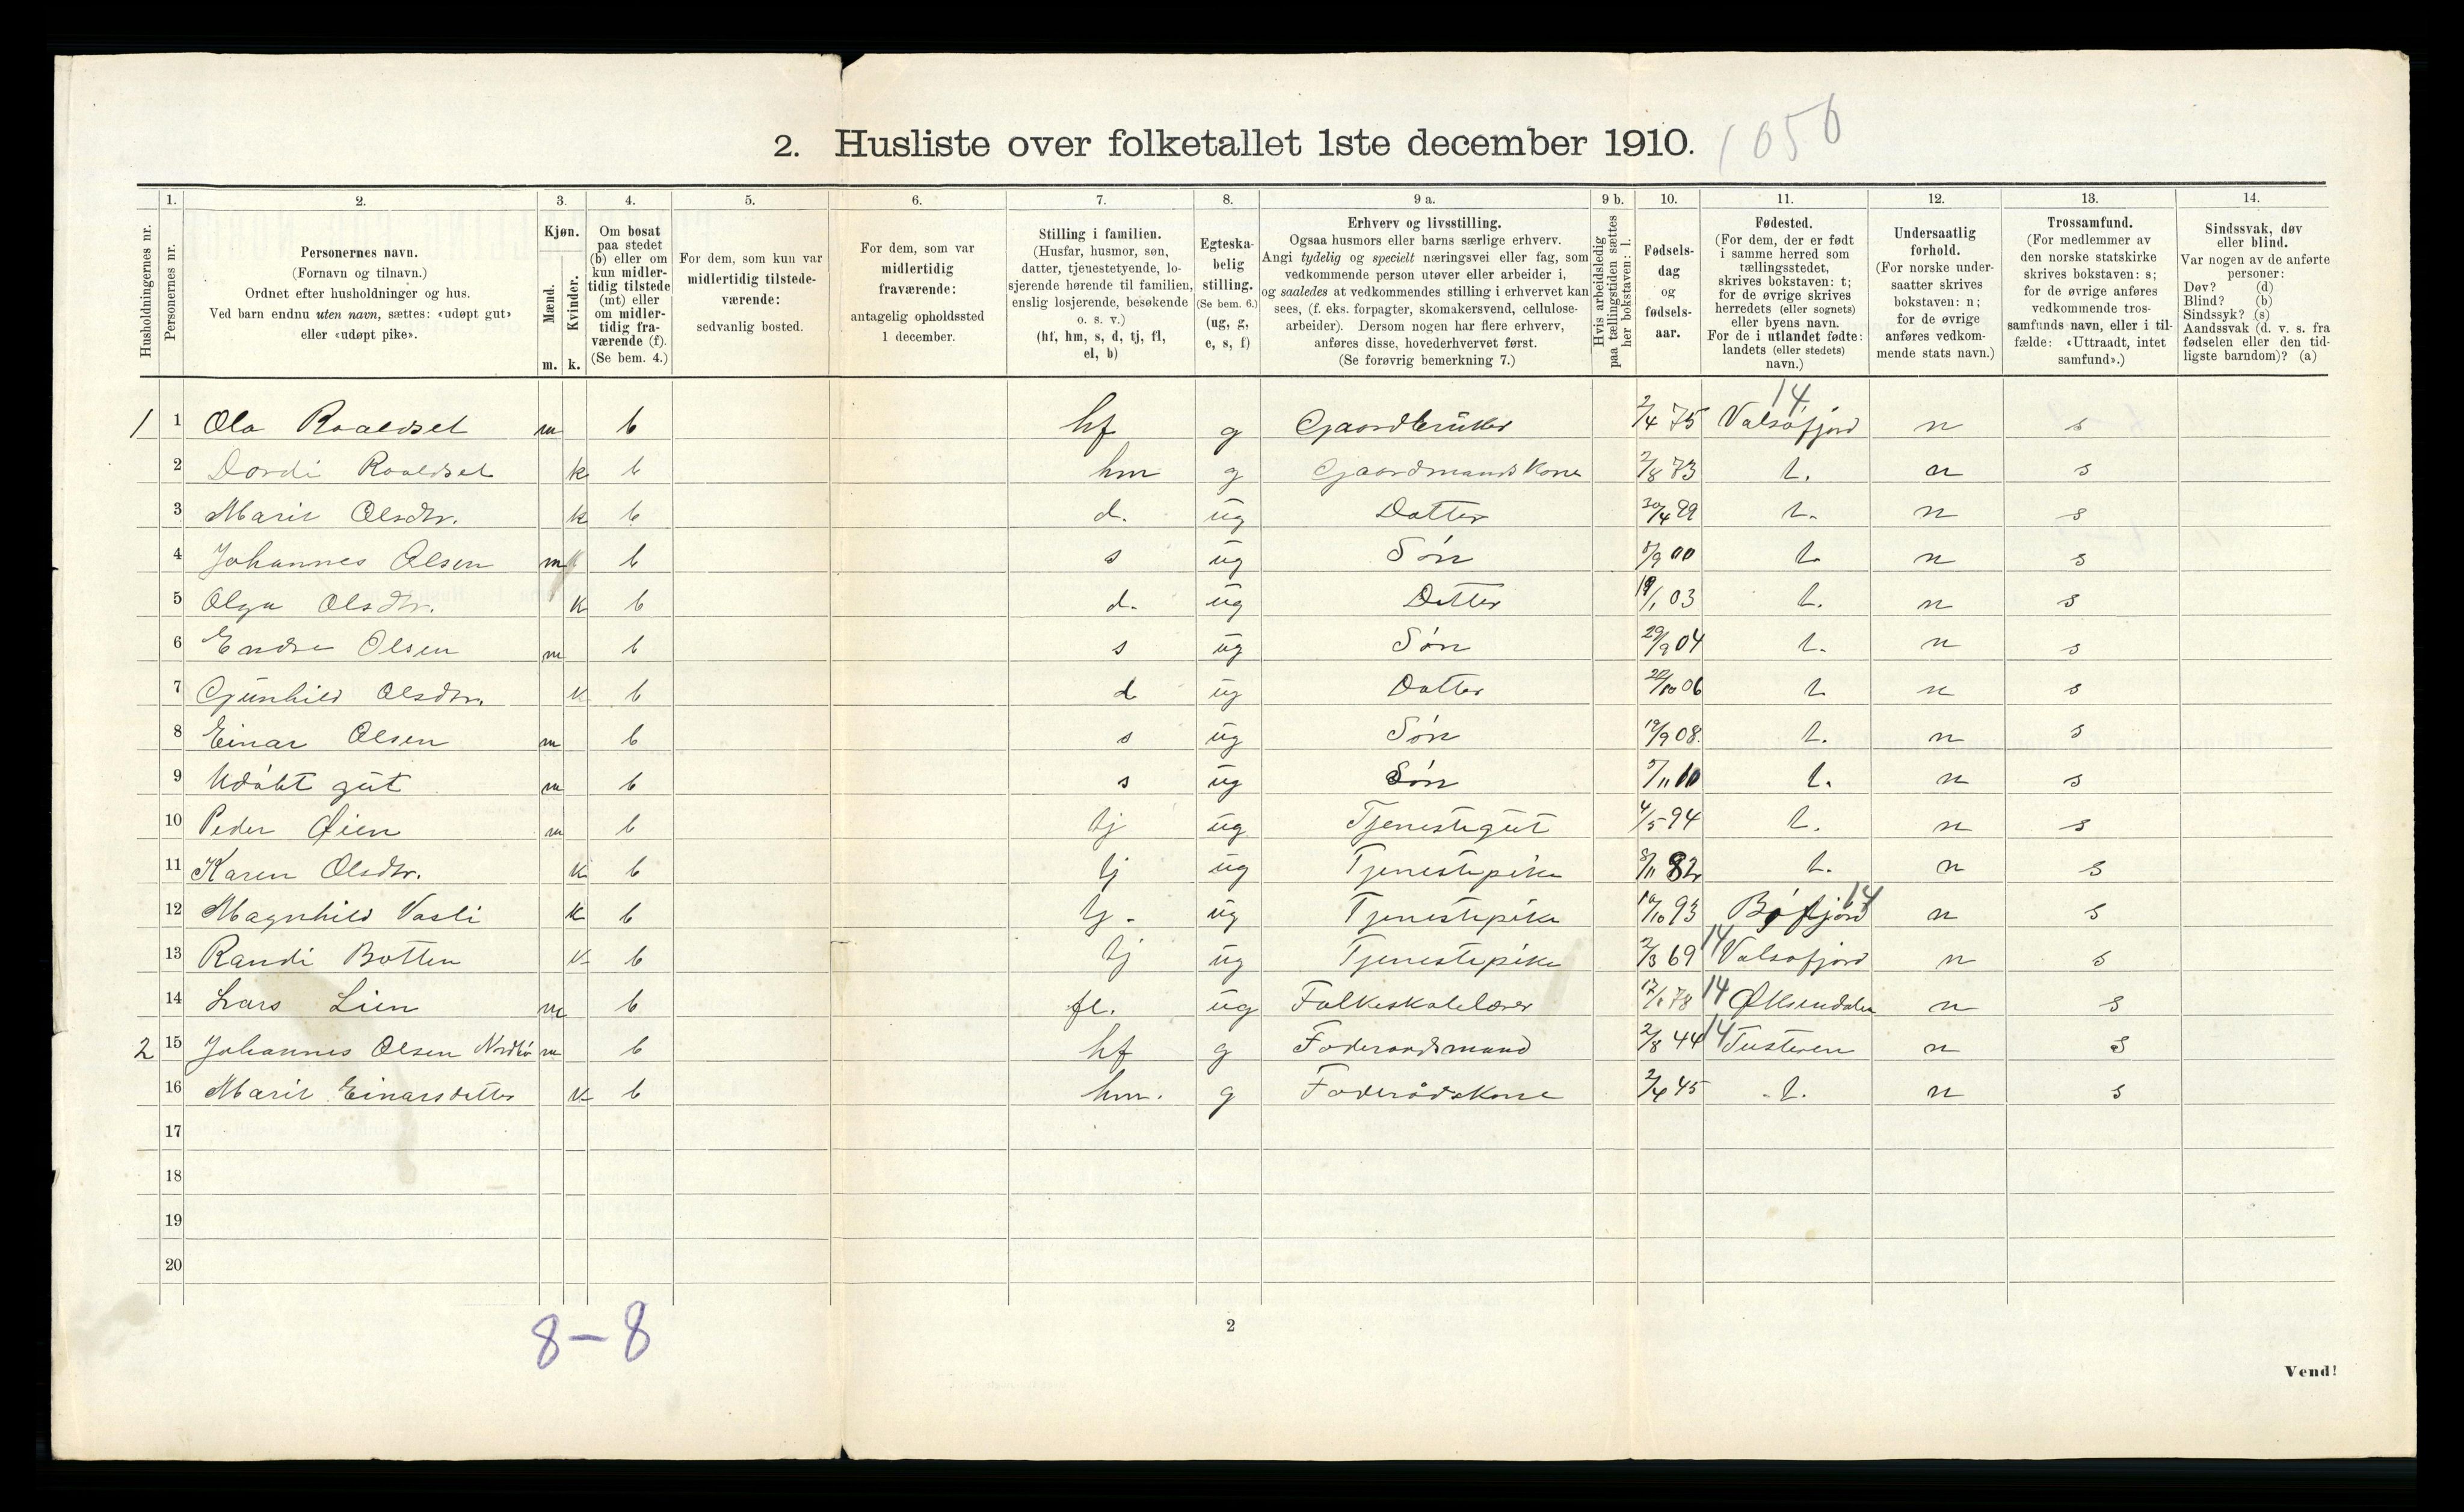 2. Husliste over folketallet 1ste december 1910. 1056
Husholdningernes nr.
1. Personernes nr.
2. Personernes navn.
(Fornavn og tilnavn.)
Ordnet efter husholdninger og hus.
Ved barn endnu uten navn, sættes: «udøpt gut»
eller «udøpt pike».
3. Kjøn.
Mænd. m.
Kvinder. k.
4. Om bosat
paa stedet
(b) eller om
kun midler-
tidig tilstede
(mt) eller
om midler-
tidig fra-
værende (f).
(Se bem. 4.)
5. For dem, som kun var
midlertidig tilstede-
værende:
sedvanlig bosted.
6. For dem, som var
midlertidig
fraværende:
antagelig opholdssted
1 december.
7. Stilling i familien.
(Husfar, husmor, søn,
datter, tjenestetyende, lo-
sjerende hørende til familien,
enslig losjerende, besøkende
o. s. v.)
(hf, hm, s, d, tj, fl,
el, b)
8. Egteska-
belig
stilling.
(Se bem. 6.)
(ug, g,
e, s, f)
9 a. Erhverv og livsstilling.
Ogsaa husmors eller barns særlige erhverv.
Angi tydelig og specielt næringsvei eller fag, som
vedkommende person utøver eller arbeider i,
og saaledes at vedkommendes stilling i erhvervet kan
sees, (f. eks. forpagter, skomakersvend, cellulose-
arbeider). Dersom nogen har flere erhverv,
anføres disse, hovederhvervet først.
(Se forøvrig bemerkning 7.)
9 b. Hvis arbeidsledig
paa tællingstiden sættes
her bokstaven: l.
10. Fødsels-
dag
og
fødsels-
aar.
11. Fødested.
(For dem, der er født
i samme herred som
tællingsstedet,
skrives bokstaven: t;
for de øvrige skrives
herredets (eller sognets)
eller byens navn.
For de i utlandet fødte:
landets (eller stedets)
navn.)
12. Undersaatlig
forhold.
(For norske under-
saatter skrives
bokstaven: n;
for de øvrige
anføres vedkom-
mende stats navn.)
13. Trossamfund.
(For medlemmer av
den norske statskirke
skrives bokstaven: s;
for de øvrige anføres
vedkommende tros-
samfunds navn, eller i til-
fælde: «Uttraadt, intet
samfund».)
14. Sindssvak, døv
eller blind.
Var nogen av de anførte
personer:
Døv? (d)
Blind? (b)
Sindssyk? (s)
Aandssvak (d. v. s. fra
fødselen eller den tid-
ligste barndom)? (a)
1 1 Ola Roaldset m b hf g Gaardbruker 2/4 75 14 Valsøfjord n s
2 Dordi Roaldset k b hm g Gaardmandskone 2/8 73 t. n s
3 Marit Olsdtr. k b d. ug Datter 30/4 99 t. n s
4 Johannes Olsen m b s ug Søn 8/9 00 t. n s
5 Olga Olsdtr. k b d. ug Datter 19/1 03 t. n s
6 Endre Olsen m b s ug Søn 29/9 04 t. n s
7 Gunhild Olsdtr. k b d ug Datter 22/10 06 t n s
8 Einar Olsen m b s ug Søn 19/9 08. t. n s
9 Udøbt gut m b s ug Søn 5/11 10 t. n s
10 Peder Øien m b tj ug Tjenestegut 4/5 94 t. n s
11 Karen Olsdtr. k b tj ug Tjenestepike 8/11 82 t. n s
12 Magnhild Vasli k b tj. ug Tjenestepike 19/10 93 Bøfjord 14 n s
13 Randi Botten k b tj ug Tjenestepike 2/3 69 14 Valsøfjord n s
14 Lars Lien m b fl. ug Folkeskolelærer 17/1 78 14 Øksendalen n s
2 15 Johannes Olsen m b hf g Foderaadsmand 2/8 44 14 Tusteren n s
16 Marit Einarsdatter k b hm. g Foderådskone 2/4 45 t. n s
17
18
19
20
8–8
2
Vend!